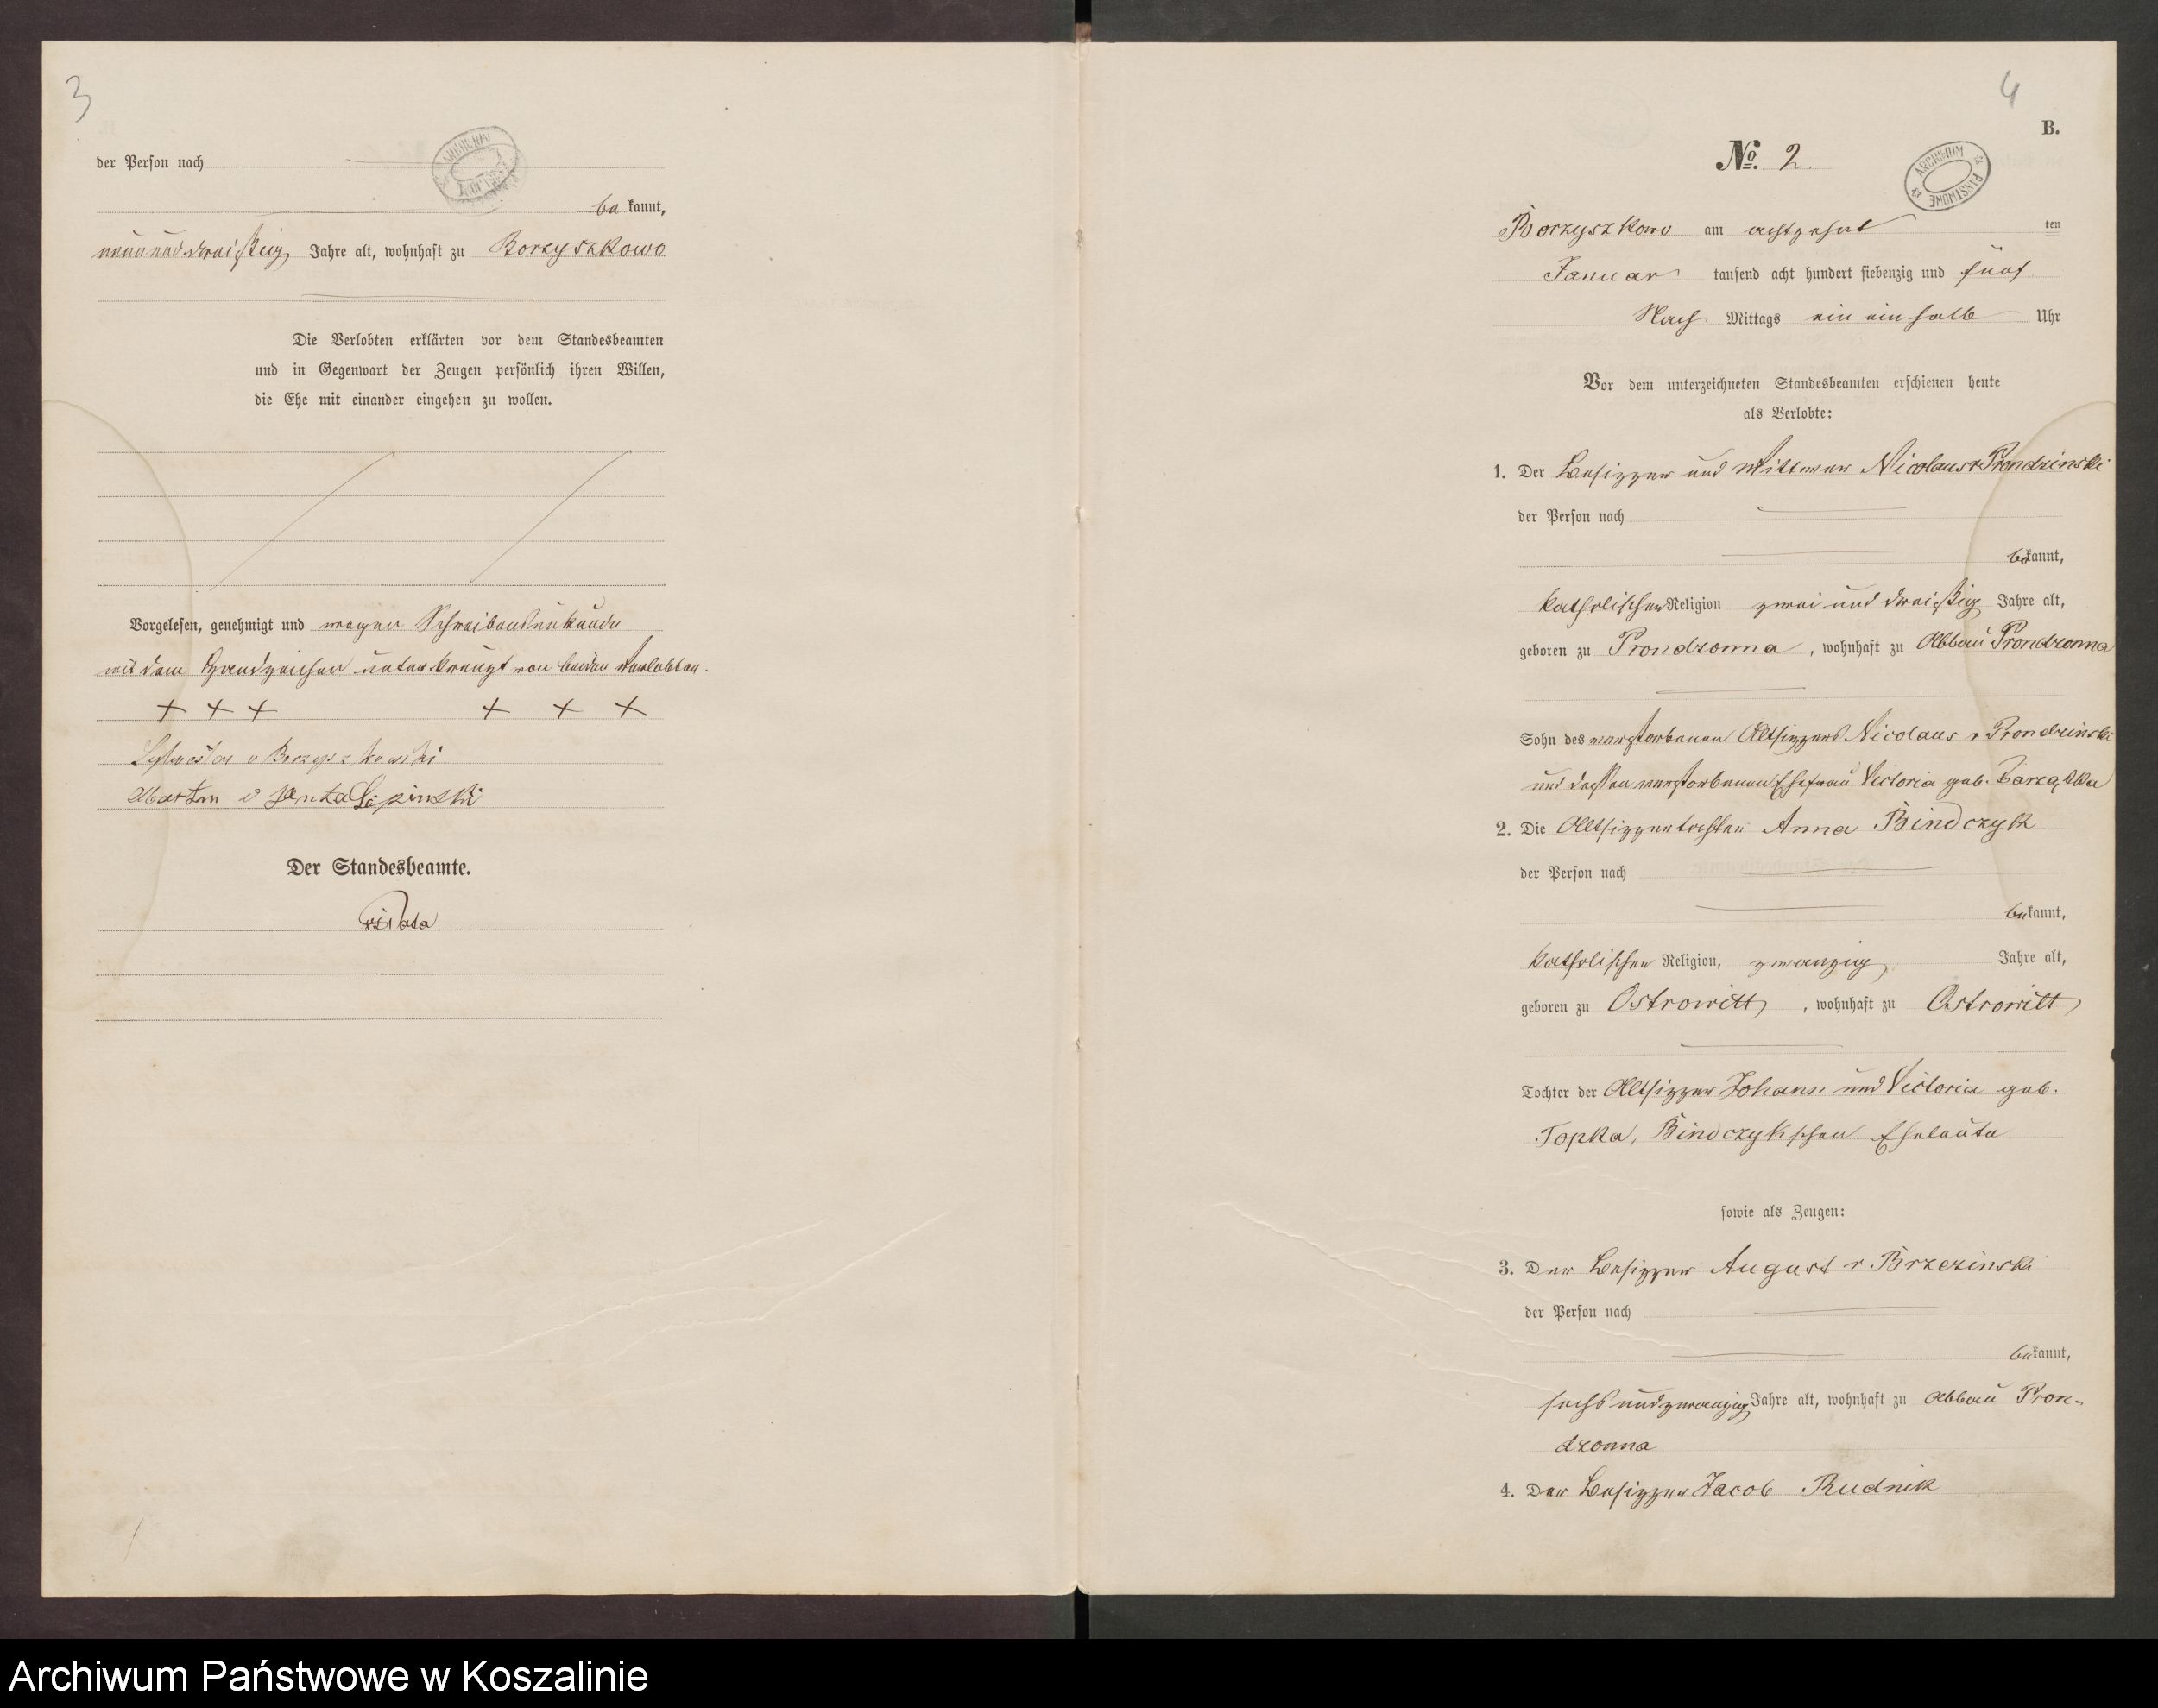 3
der Person nach
bekannt,
neununddreißig Jahre alt, wohnhaft zu Borzyszkowo
Die Verlobten erklärten vor dem Standesbeamten
und in Gegenwart der Zeugen persönlich ihren Willen,
die Ehe mit einander eingehen zu wollen.
Vorgelesen, genehmigt und wegen Schreibensunkunde
mit dem Handzeichen unterkreuzt von beiden Verlobten.
+ + + + + +
Sylvester v Borzyszkowski
Marton v Janta Lipinski
Der Standesbeamte.
4
B.
No. 2.
ARCHIWUM PAŃSTWOWE
Borzyszkowo am achtzehnt ten
Januar tausend acht hundert siebenzig und fünf
Nach Mittags ein ein halb Uhr
Vor dem unterzeichneten Standesbeamten erschienen heute
als Verlobte:
1. Der Besitzer und Wittwer Nicolaus v Prondzinski
der Person nach
bekannt,
katholischer Religion zwei und dreißig Jahre alt,
geboren zu Prondzonna, wohnhaft zu Abbau Prondzonna
Sohn des verstorbenen Altsitzers Nicolaus v Prondzinski
und dessen verstorbenen Ehefrau Victoria geb.
2. Die Altsitzertochter Anna Bindczyk
der Person nach
bekannt,
katholischer Religion, zwanzig Jahre alt,
geboren zu Ostrowitt, wohnhaft zu Ostrowitt
Tochter der Altsitzer Johann und Victoria geb.
Topka, Bindczykschen Eheleute
sowie als Zeugen:
3. Der Besitzer August v Brzezinski
der Person nach
bekannt,
sechs und zwanzig Jahre alt, wohnhaft zu Abbau Pron-
dzonna
4. Der Besitzer Jacob Rudnik
Archiwum Państwowe w Koszalinie